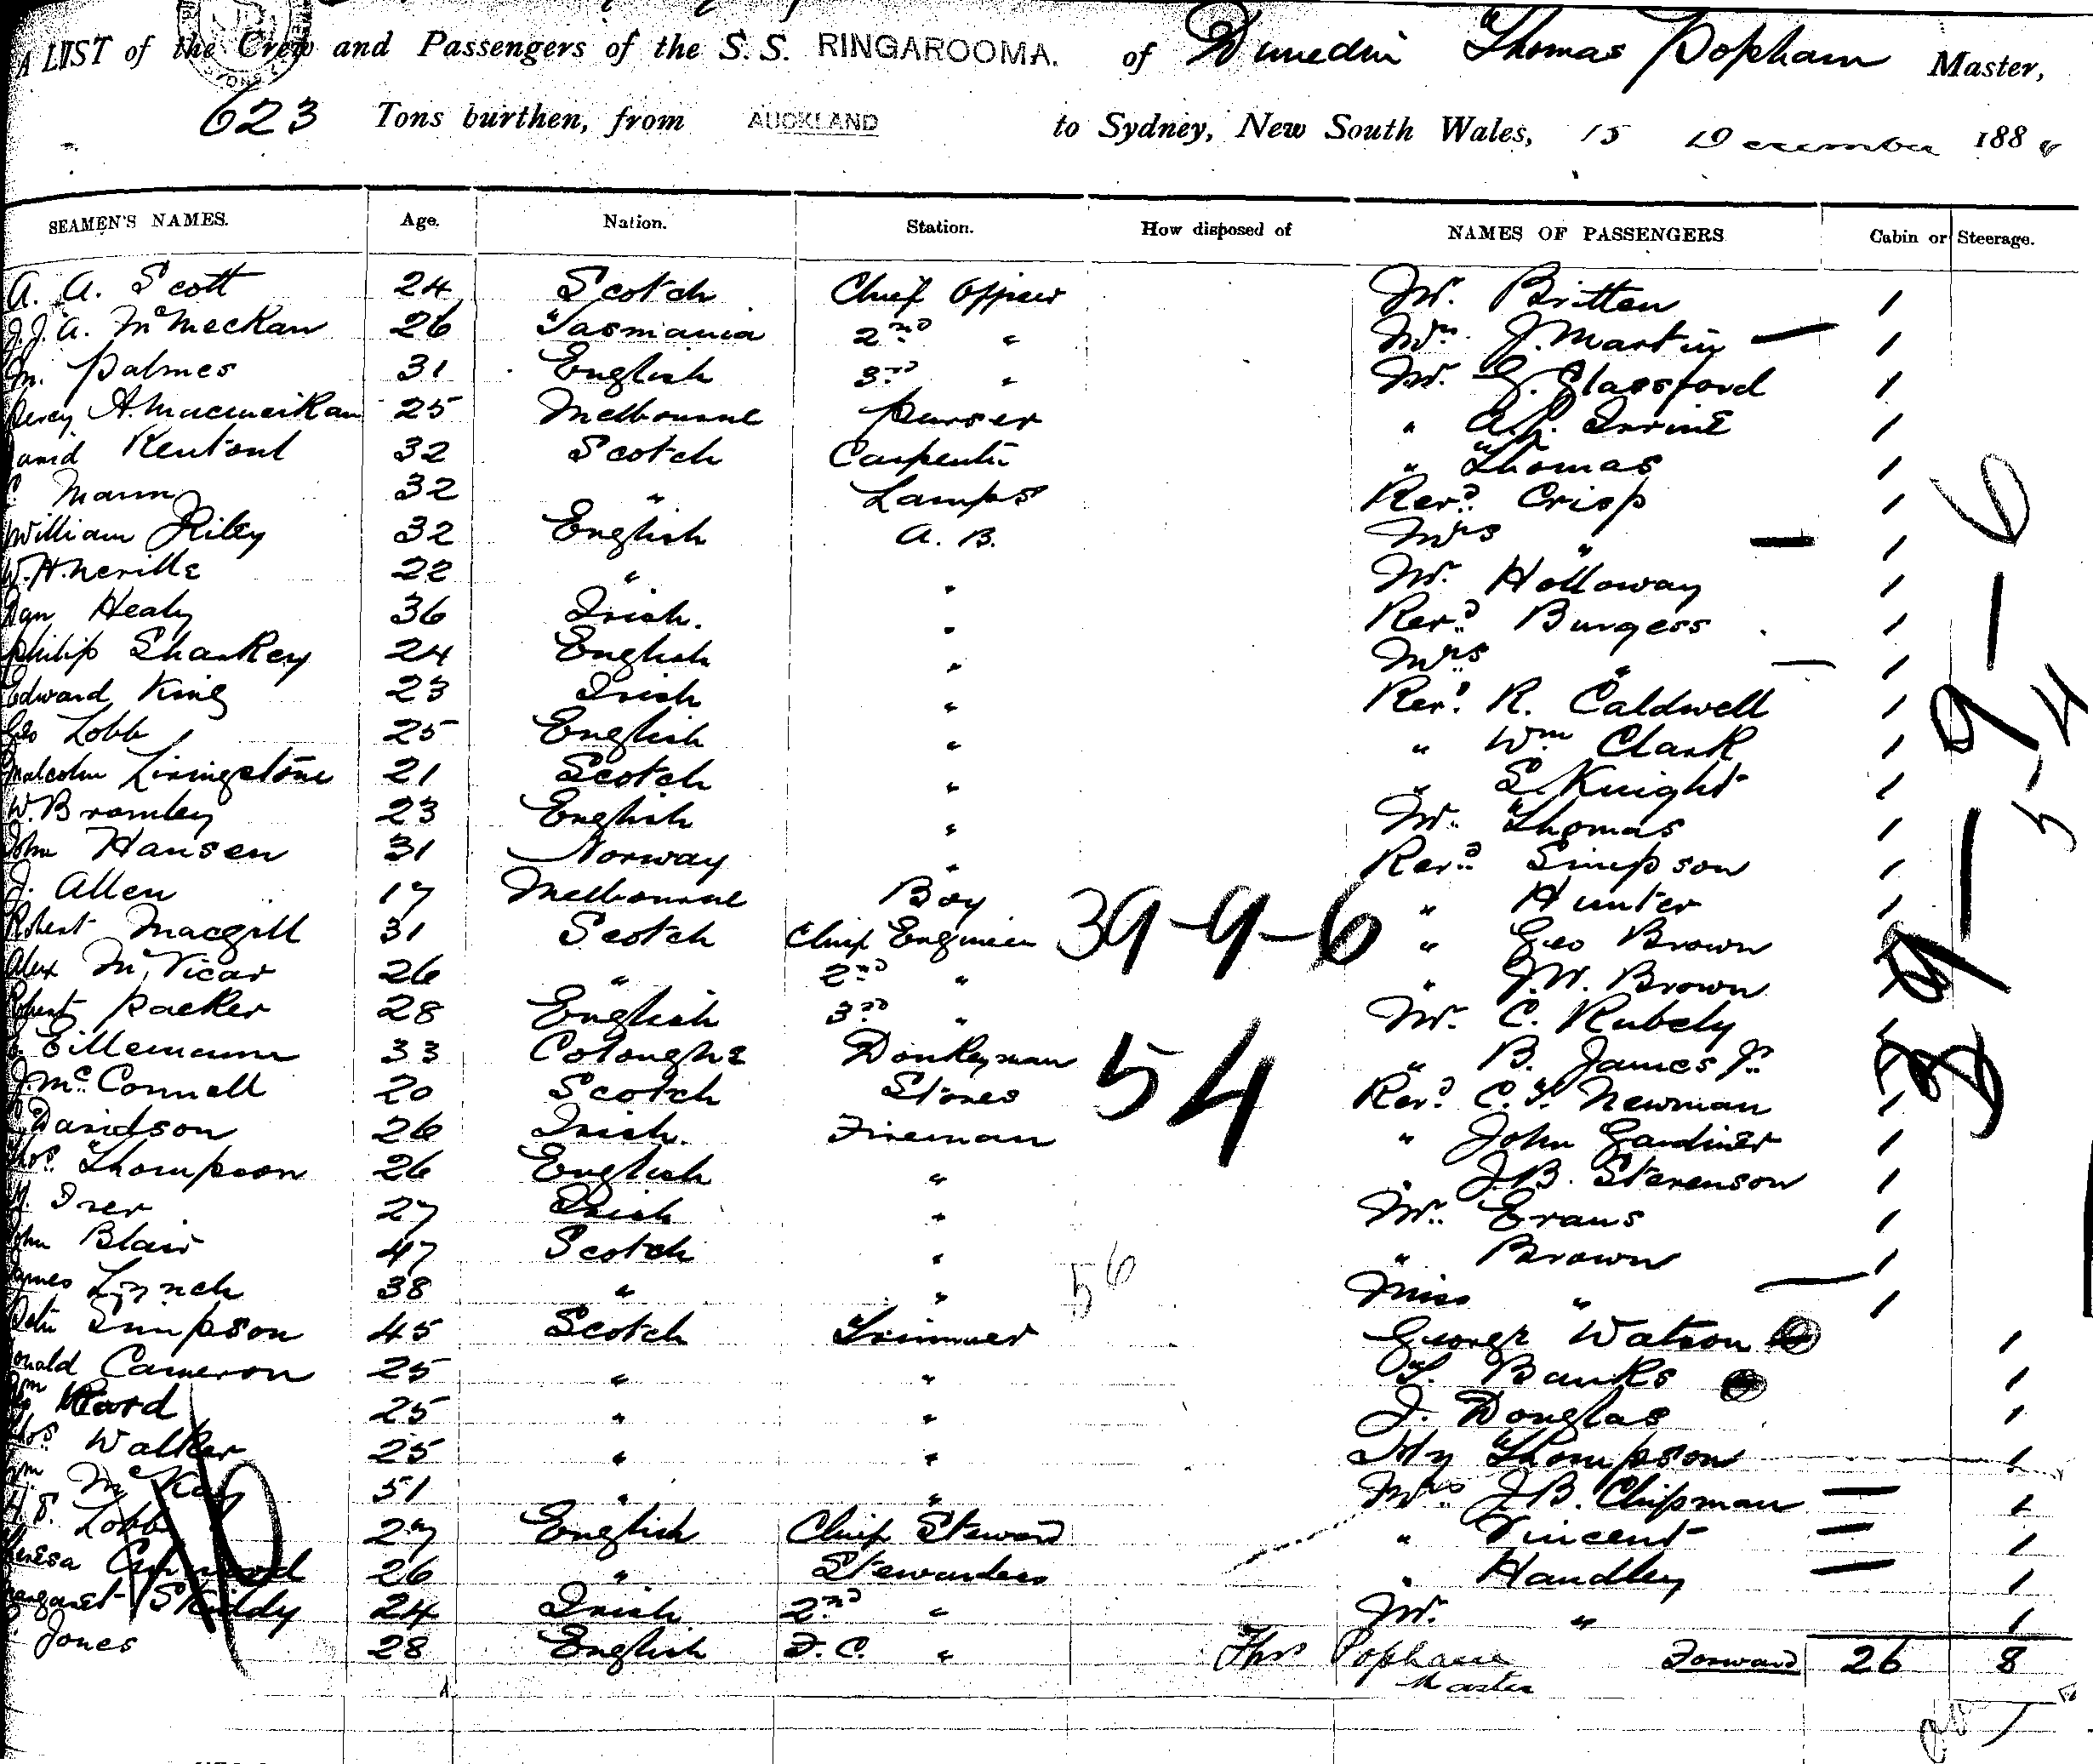 A LIST of the Crew and Passengers of the S.S. RINGAROOMA. of Dunedin Thomas Popham Master,
623 Tons burthen, from AUCKLAND to Sydney, New South Wales, 15 December 188
SEAMEN'S NAMES. Age. Nation. Station. How disposed of NAMES OF PASSENGERS Cabin or Steerage.
A. A. Scott 24 Scotch Chief Officer Mr. Britten 1
J. J. A. McMeckan 26 Tasmania 2nd " Mrs. J. Martin — 1
M. Palmes 31 English 3rd " Mr. G. Glassford 1
Percy A. Macmeikan 25 Melbourne Purser " A. Irvine 1
David Rentoul 32 Scotch Carpenter " Thomas 1
Mann 32 " Lamps Revd. Crisp 1
William Riley 32 English A. B. Mrs " — 1
W. H. Neville 22 " " Mr. Holloway 1
Dan Healy 36 Irish. " Revd. Burgess 1
Philip Sharkey 24 English " Mrs " — 1
Edward King 23 Irish " Revd. R. Caldwell 1
Geo Lobb 25 English " " Wm Clark 1
Malcolm Livingstone 21 Scotch " " S. Knight 1
W. Bromley 23 English " Mr. Thomas 1
John Hansen 31 Norway " Revd. Simpson 1
J. Allen 17 Melbourne Boy " Hunter 1
Robert Macgill 31 Scotch Chief Engineer 39-9-6 " Geo Brown 1
Alex McVicar 26 " 2nd " " J. W. Brown 1
Robert Packer 28 English 3rd " Mr. C. Rubely 1
Eillemann 33 Colougne Donkeyman 54 " B. James Jr. 1
J. McConnell 20 Scotch Stores Revd. C. F. Newman 1
Davidson 26 Irish. Fireman " John Gardiner 1
Thos. Thompson 26 English " " J. B. Stevenson 1
Iver 27 Irish " Mr. Evans 1
John Blair 47 Scotch " " Brown 1
James Lynch 38 " " 56 Miss " — 1
Peter Simpson 45 Scotch Trimmer George Watson 1
Donald Cameron 25 " " T. Banks 1
Wm 25 " " J. Douglas 1
Thos. Walker 25 " " Hy Thompson 1
Wm McKay 51 " " Mrs J. B. Chipman — 1
Lobb 27 English Chief Steward " Vincent — 1
Teresa 26 " Stewardess " Handley — 1
Margaret Skiddy 24 Irish 2nd " Mr. " 1
Jones 28 English F. C. " Thos Popham Forward 26 8
Master
39-9-6
54